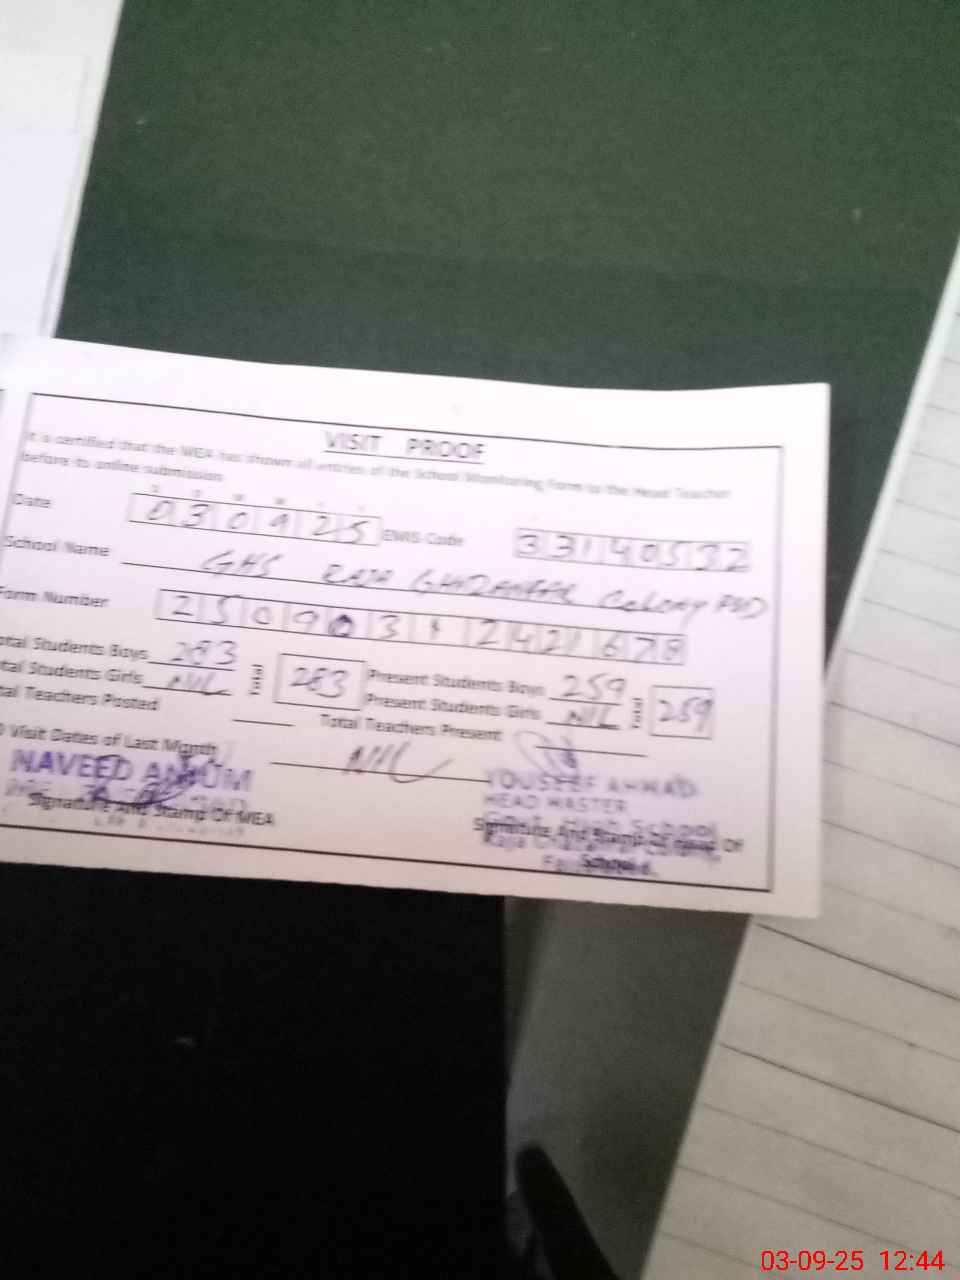 VISIT PROOF
It is certified that the MEA has shown all entries of the School Monitoring Form to the Head Teacher
before its online submission
Date 030925 EMIS Code 33140532
School Name GHS RAJA Colony FSD
Form Number 250903 2421678
Total Students Boys 283 283 Present Students Boys 259 259
Total Students Girls NIL Present Students Girls NIL
Total Teachers Posted Total Teachers Present
Visit Dates of Last Month NIL
NAVEED ANJUM
Signature And Stamp Of MEA
YOUSEEF AHMAD
HEAD MASTER
Govt. High School
Signature And Stamp Of
School
03-09-25 12:44